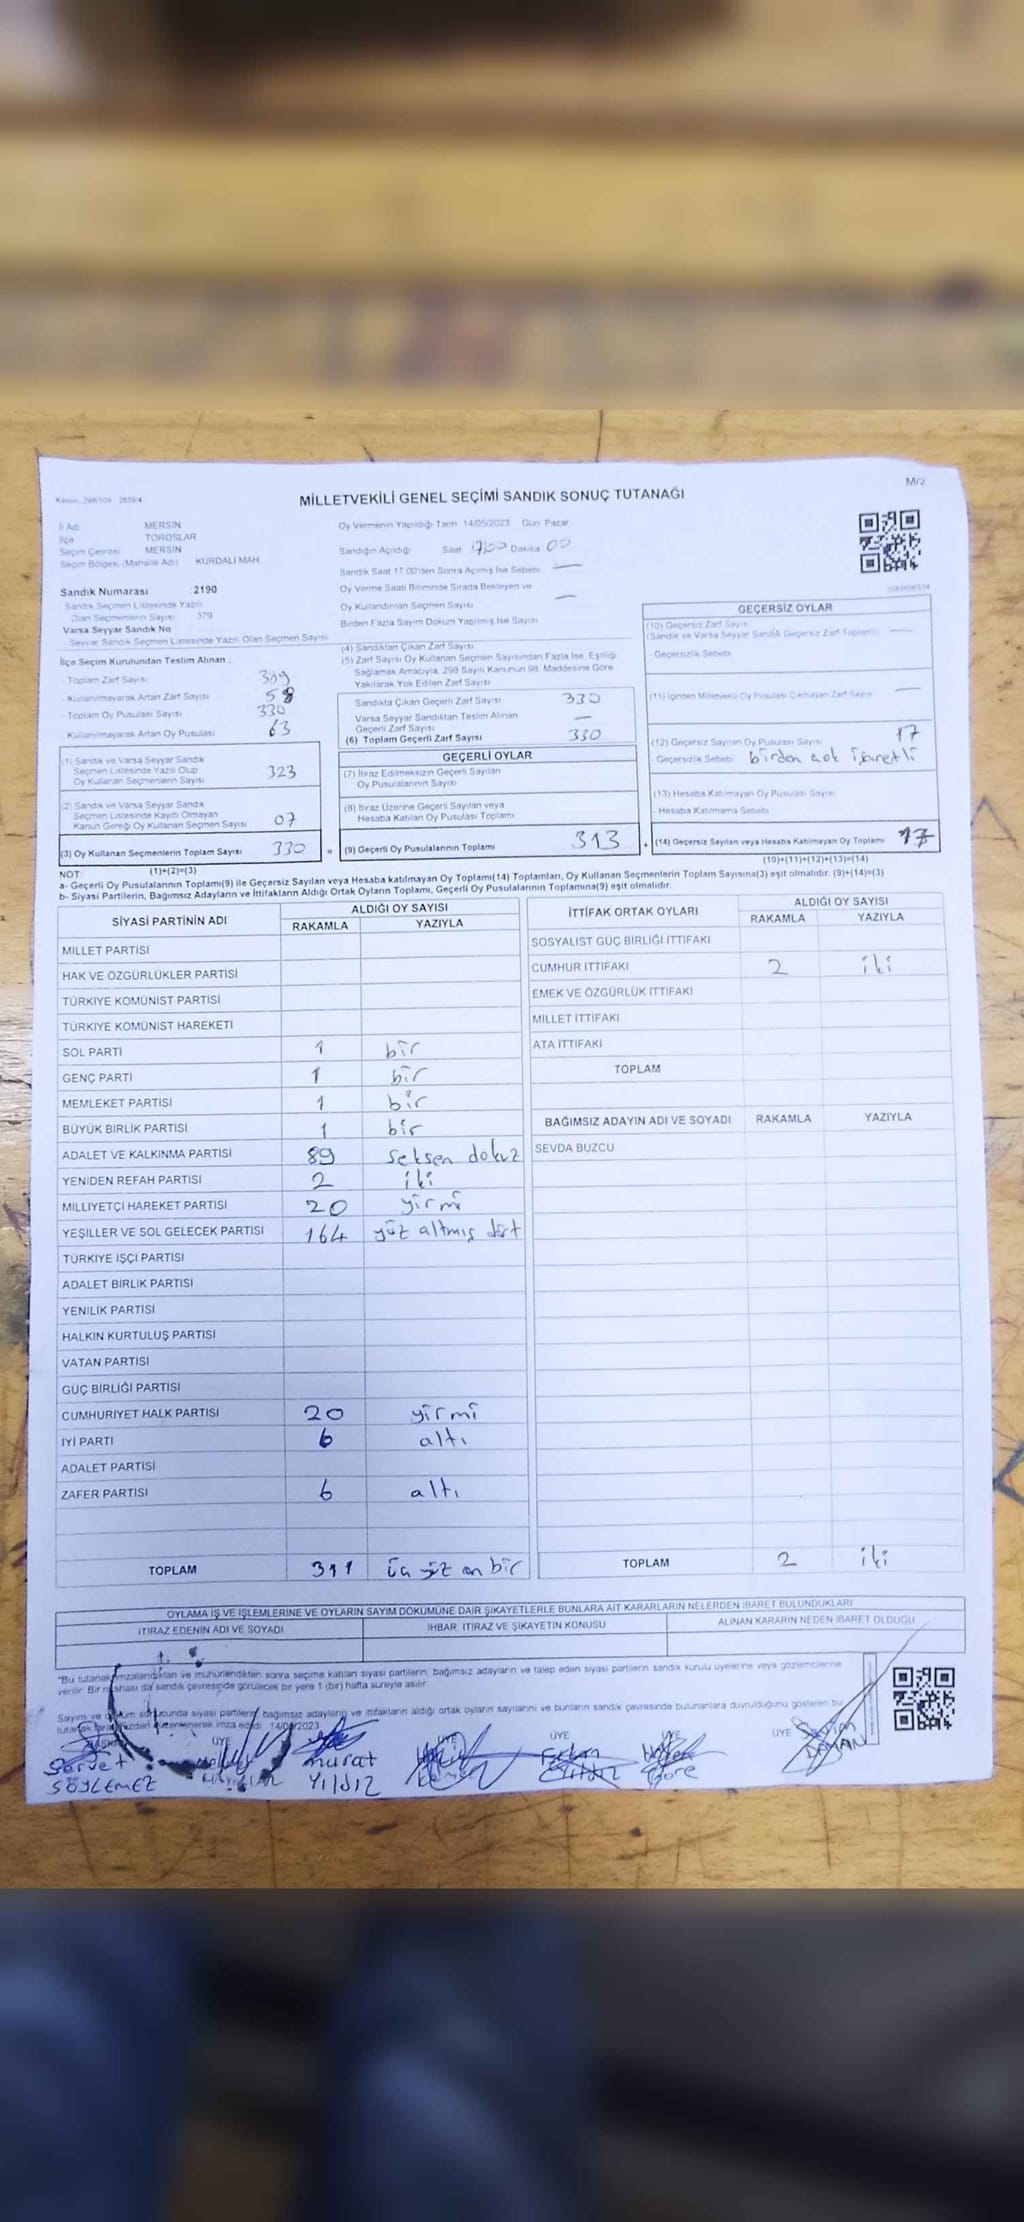 Kanun: 298/105 - 2839/4
M/2
MİLLETVEKİLİ GENEL SEÇİMİ SANDIK SONUÇ TUTANAĞI
İl Adı MERSİN
İlçe TOROSLAR
Seçim Çevresi MERSİN
Seçim Bölgesi (Mahalle Adı) KURDALİ MAH.
Sandık Numarası : 2190
Sandık Seçmen Listesinde Yazılı
Olan Seçmenlerin Sayısı : 379
Varsa Seyyar Sandık No
Seyyar Sandık Seçmen Listesinde Yazılı Olan Seçmen Sayısı
Oy Vermenin Yapıldığı Tarih 14/05/2023 Gün: Pazar
Sandığın Açıldığı Saat 17:00 Dakika 00
Sandık Saat 17.00'den Sonra Açılmış İse Sebebi —
Oy Verme Saati Bitiminde Sırada Bekleyen ve
Oy Kullandırılan Seçmen Sayısı —
Birden Fazla Sayım Döküm Yapılmış İse Sayısı
İlçe Seçim Kurulundan Teslim Alınan :
- Toplam Zarf Sayısı
- Kullanılmayarak Artan Zarf Sayısı 58
- Toplam Oy Pusulası Sayısı 330
Kullanılmayarak Artan Oy Pusulası 63
(1) Sandık ve Varsa Seyyar Sandık
Seçmen Listesinde Yazılı Olup
Oy Kullanan Seçmenlerin Sayısı 323
(2) Sandık ve Varsa Seyyar Sandık
Seçmen Listesinde Kayıtlı Olmayan
Kanun Gereği Oy Kullanan Seçmen Sayısı 07
(3) Oy Kullanan Seçmenlerin Toplam Sayısı 330
(1)+(2)=(3)
(4) Sandıktan Çıkan Zarf Sayısı
(5) Zarf Sayısı Oy Kullanan Seçmen Sayısından Fazla İse, Eşitliği
Sağlamak Amacıyla, 298 Sayılı Kanunun 98. Maddesine Göre
Yakılarak Yok Edilen Zarf Sayısı
Sandıkta Çıkan Geçerli Zarf Sayısı 330
Varsa Seyyar Sandıktan Teslim Alınan
Geçerli Zarf Sayısı —
(6) Toplam Geçerli Zarf Sayısı 330
GEÇERLİ OYLAR
(7) İtiraz Edilmeksizin Geçerli Sayılan
Oy Pusulasının Sayısı
(8) İtiraz Üzerine Geçerli Sayılan veya
Hesaba Katılan Oy Pusulası Toplamı
= (9) Geçerli Oy Pusulalarının Toplamı 313
GEÇERSİZ OYLAR
(10) Geçersiz Zarf Sayısı
(Sandık ve Varsa Seyyar Sandık Geçersiz Zarf Toplamı) —
- Geçersizlik Sebebi
(11) İçinden Milletvekili Oy Pusulası Çıkmayan Zarf Sayısı —
(12) Geçersiz Sayılan Oy Pusulası Sayısı 17
- Geçersizlik Sebebi birden çok işaretli
(13) Hesaba Katılmayan Oy Pusulası Sayısı
- Hesaba Katılmama Sebebi
+ (14) Geçersiz Sayılan veya Hesaba Katılmayan Oy Toplamı 17
(10)+(11)+(12)+(13)=(14)
NOT:
a- Geçerli Oy Pusulalarının Toplamı(9) ile Geçersiz Sayılan veya Hesaba katılmayan Oy Toplamı(14) Toplamları, Oy Kullanan Seçmenlerin Toplam Sayısına(3) eşit olmalıdır. (9)+(14)=(3)
b- Siyasi Partilerin, Bağımsız Adayların ve İttifakların Aldığı Ortak Oyların Toplamı, Geçerli Oy Pusulalarının Toplamına(9) eşit olmalıdır.
SİYASİ PARTİNİN ADI ALDIĞI OY SAYISI
RAKAMLA YAZIYLA
MİLLET PARTİSİ
HAK VE ÖZGÜRLÜKLER PARTİSİ
TÜRKİYE KOMÜNİST PARTİSİ
TÜRKİYE KOMÜNİST HAREKETİ
SOL PARTİ 1 bir
GENÇ PARTİ 1 bir
MEMLEKET PARTİSİ 1 bir
BÜYÜK BİRLİK PARTİSİ 1 bir
ADALET VE KALKINMA PARTİSİ 89 seksen dokuz
YENİDEN REFAH PARTİSİ 2 iki
MİLLİYETÇİ HAREKET PARTİSİ 20 yirmi
YEŞİLLER VE SOL GELECEK PARTİSİ 164 yüz altmış dört
TÜRKİYE İŞÇİ PARTİSİ
ADALET BİRLİK PARTİSİ
YENİLİK PARTİSİ
HALKIN KURTULUŞ PARTİSİ
VATAN PARTİSİ
GÜÇ BİRLİĞİ PARTİSİ
CUMHURİYET HALK PARTİSİ 20 yirmi
İYİ PARTİ 6 altı
ADALET PARTİSİ
ZAFER PARTİSİ 6 altı
TOPLAM 311 üç yüz on bir
İTTİFAK ORTAK OYLARI ALDIĞI OY SAYISI
RAKAMLA YAZIYLA
SOSYALİST GÜÇ BİRLİĞİ İTTİFAKI
CUMHUR İTTİFAKI 2 iki
EMEK VE ÖZGÜRLÜK İTTİFAKI
MİLLET İTTİFAKI
ATA İTTİFAKI
TOPLAM
BAĞIMSIZ ADAYIN ADI VE SOYADI RAKAMLA YAZIYLA
SEVDA BUZCU
TOPLAM 2 iki
OYLAMA İŞ VE İŞLEMLERİNE VE OYLARIN SAYIM DÖKÜMÜNE DAİR ŞİKAYETLERLE BUNLARA AİT KARARLARIN NELERDEN İBARET BULUNDUKLARI
İTİRAZ EDENİN ADI VE SOYADI İHBAR, İTİRAZ VE ŞİKAYETİN KONUSU ALINAN KARARIN NEDEN İBARET OLDUĞU
*Bu tutanak imzalandıktan ve mühürlendikten sonra seçime katılan siyasi partilerin, bağımsız adayların ve talep eden siyasi partilerin sandık kurulu üyelerine veya gözlemcilerine
verilir. Bir nüshası da sandık çevresinde görülecek bir yere 1 (bir) hafta süreyle asılır.
Sayım ve döküm sonucunda siyasi partilerin, bağımsız adayların ve ittifakların aldığı ortak oyların sayılarını ve bunların sandık çevresinde bulunanlara duyurulduğunu gösteren bu
tutanak tarafımızdan düzenlenerek imza edildi. 14/05/2023
ÜYE ÜYE ÜYE ÜYE ÜYE
Servet
SÖYLEMEZ
murat
YILDIZ